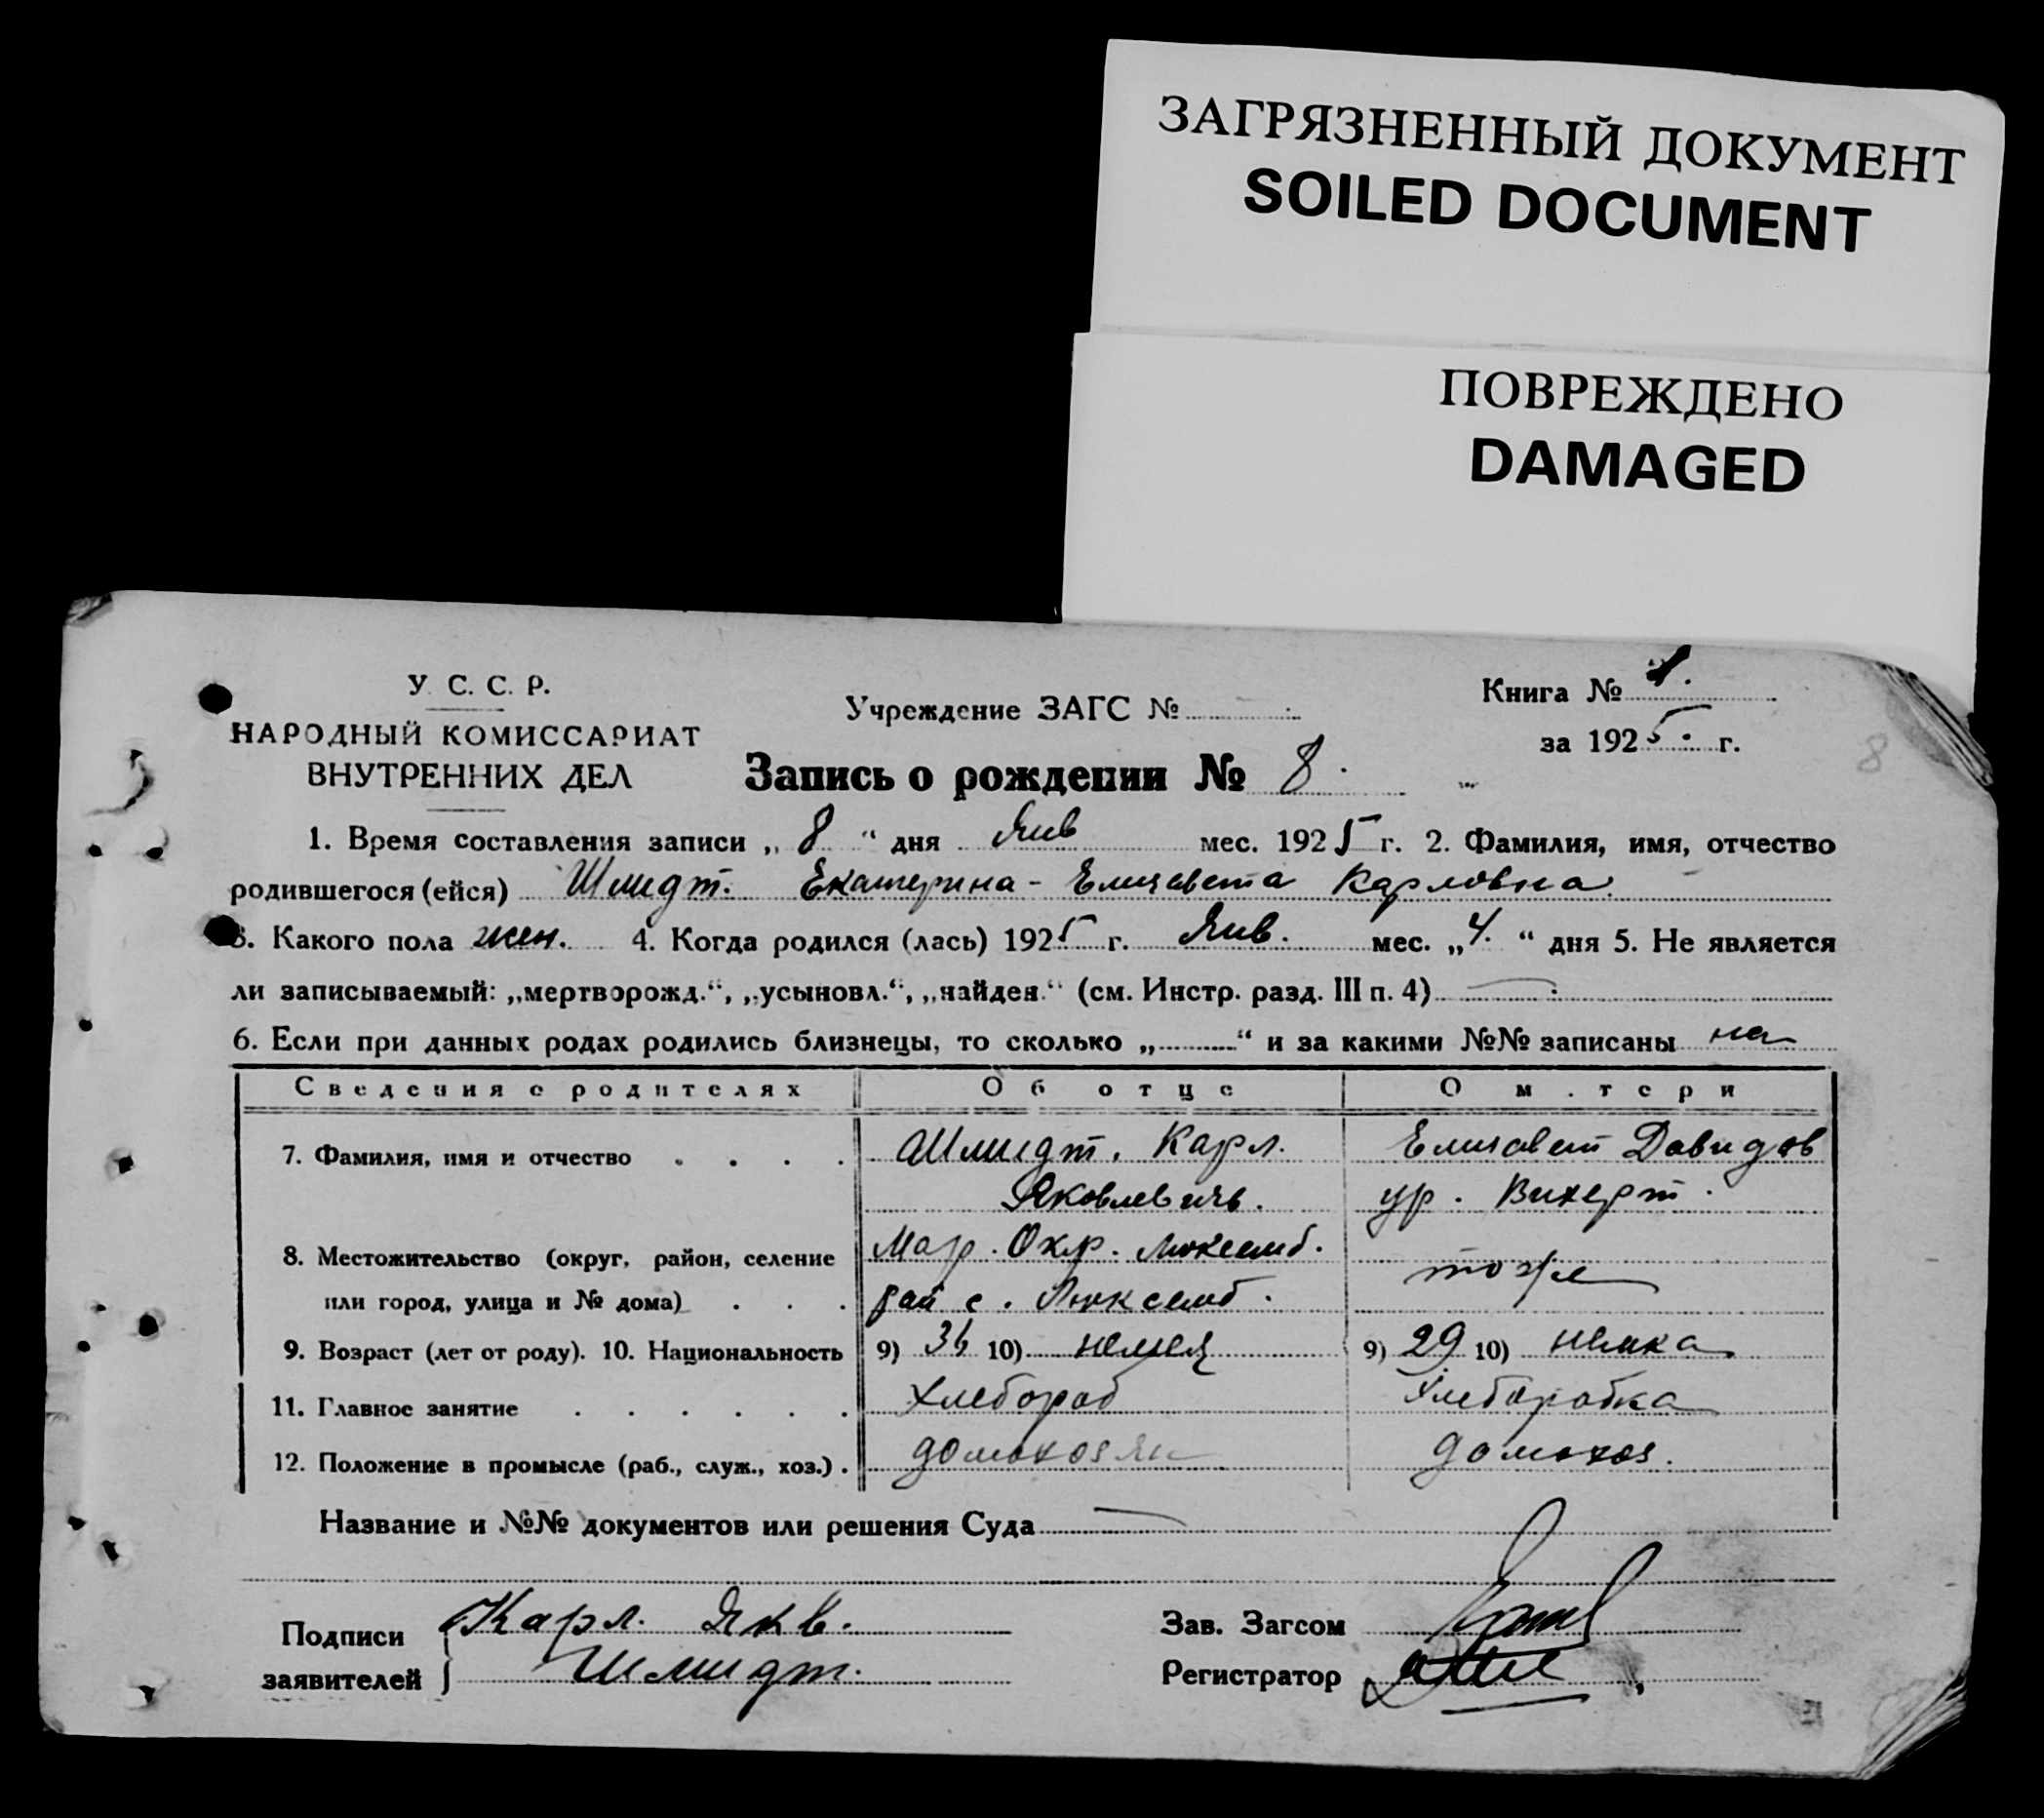 ЗАГРЯЗНЕННЫЙ ДОКУМЕНТ
SOILED DOCUMENT
ПОВРЕЖДЕНО
DAMAGED
У. С. С. Р.
НАРОДНЫЙ КОМИССАРИАТ
ВНУТРЕННИХ ДЕЛ
Учреждение ЗАГС №
Книга № 1.
за 1925. г.
8
Запись о рождении № 8.
1. Время составления записи „ 8 “ дня Янв мес. 1925 г. 2. Фамилия, имя, отчество
родившегося (ейся) Шмидт. Екатерина - Елизавета Карловна.
3. Какого пола жен. 4. Когда родился (лась) 1925 г. Янв. мес. „ 4. “ дня 5. Не является
ли записываемый: „мертворожд.“, „усыновл.“, „найден.“ (см. Инстр. разд. III п. 4)
6. Если при данных родах родились близнецы, то сколько „ “ и за какими №№ записаны
Сведения о родителях Об отце О м тери
7. Фамилия, имя и отчество . . . . Шмидт. Карл. Елизавет Давидов
Яковлевичь. ур. Вихерт.
8. Местожительство (округ, район, селение Мар. Окр. Люксемб. тоже
или город, улица и № дома) . . . рай с. Люксемб.
9. Возраст (лет от роду). 10. Национальность 9) 10) немец 9) 29 10) немка
11. Главное занятие . . . . . . хлебороб хлеборобка
12. Положение в промысле (раб., служ., хоз.) . домохозяин домохоз.
Название и №№ документов или решения Суда
Подписи Карл. Якв. Зав. Загсом
заявителей Шмидт. Регистратор